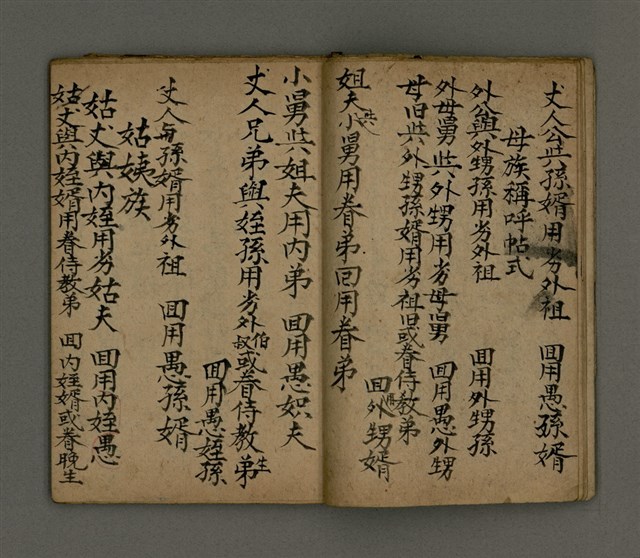 丈人公共孫婿用劣外祖 回用愚孫婿
母族稱呼帖式
外公與外甥孫用劣外祖 回用外甥孫
外母舅共外甥用劣母舅 回用愚外甥
母旧共外甥孫婿用劣祖旧或眷侍教弟 回外甥婿
姐夫共小舅用眷弟回用眷弟
小舅共姐夫用内弟 回用愚姐夫
丈人兄弟與姪孫用劣外伯叔或眷侍教弟 回用愚姪孫
丈人与孫婿用劣外祖 回用愚孫婿
姑姨族
姑丈與内姪用劣姑夫 回用内姪愚
姑丈與内姪婿用眷侍教弟 回内姪婿或眷晚生